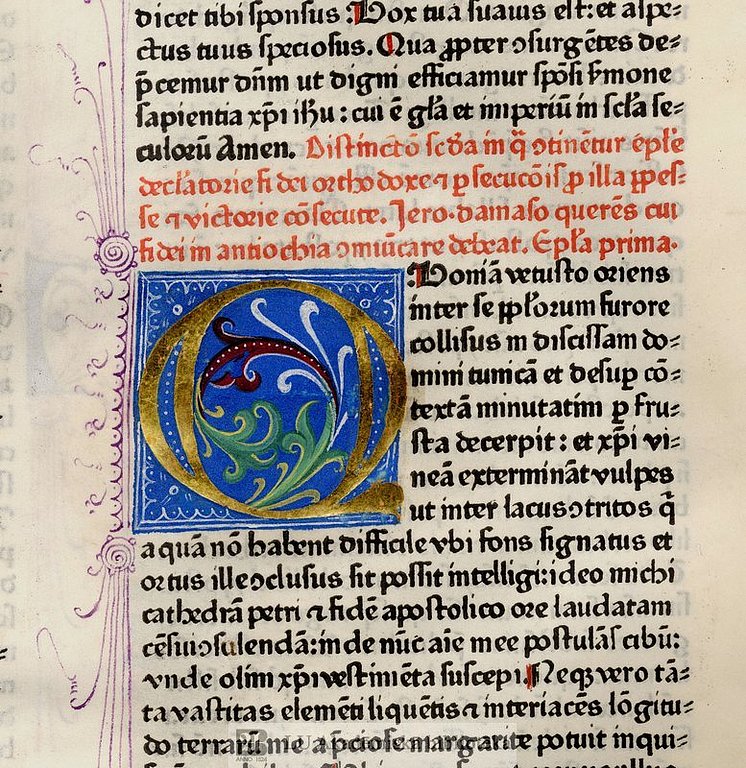 dicet tibi sponsus. Vox tuā suauis est: et aspe⸗
ctus tuus speciosus. Qua ꝓpter ↄsurgētes de⸗
p̄cemur dn̄m ut digni efficiamur spōsi s̄mone
sapientia xp̄i ih̄u: cui ē gl̄a et imperiū in scl̄a se⸗
culoꝛū Amen. Distinctō scd̄a in q̄ ↄtinētur ep̄le
decl̄atorie fidei orthodoxe ⁊ ꝑsecucōis ꝓ illa ꝓpes⸗
se ⁊ victorie cōsecute. Jero. damaso querēs cui
fidei in antiochia ↄmūicare debeat. Ep̄la prima.
Quoniā vetusto oriens
inter se pp̄lorum furore
collisus indiscissam do⸗
mini tunicā et desuꝑ cō⸗
textā minutatim ꝑ fru⸗
sta decerpit: et xp̄i vi⸗
neā extermināt vulpes
ut inter lacus ↄtritos q̄
aquā nō habent difficile vbi fons signatus et
ortus ille ↄclusus sit possit intelligi: ideo michi
cathedrā petri ⁊ fidē apostolico ore laudatam
cēsui ↄsulendā: inde nūc aīe mee postulās cibū:
vnde olim xp̄i vestimēta suscepi. Neqꝫ vero tā⸗
ta vastitas elemēti liquētis ⁊ interiacēs lōgitu⸗
do terrarū me a p̄ciose margarite potuit inqui⸗